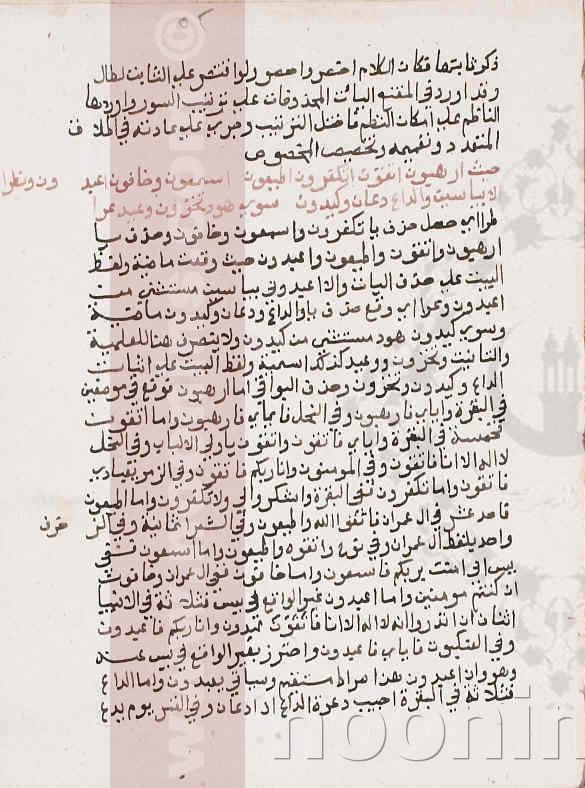 ذكر ثابتها فكان الكلام اخصر واحصر ولو اقتصر على الثابت لطال
وقد اورد في المقنع اليائت المحذوفات على ترتيب السور واوردها
الناظم على امكان النظم فاختل الترتيب وجرى على عادته في اطلاق
المتعدد وتعميمه وتخصيص المخصوص
حيث ارهبون اتقون تكفرون اطيعون اسمعون وخافون اعبدون
الا بياسين والداع دعان وكيدون سوى هود تخزون وعيد عرا
طرا اي حصل حذف يا تكفرون واسمعون وخافون وحذف يا
ارهبون واتقون واطيعون واعبدون حيث وقعت ولفظ
البيت على حذف اليات والا اعبدوني بياسين مستثنى من
اعبدون وعرا اي وقع حذف يا والداع ودعان وكيدون
وسوى كيدون هود مستثنى من كيدون ولا ينصرف هنا للعلمية
والتانيث وتخزون ووعيد كذلك اسمية ولفظ البيت على اثبات
الداع وكيدون وتخزون وحذف البواقي اما ارهبون فوقع في موضعين
في البقرة واياي فارهبون وفي النحل فاياي فارهبون واما اتقون
فخمسة في البقرة واياي فاتقون واتقون يا اولي الالباب وفي النحل
لا اله الا انا فاتقون وفي المومنون وانا ربكم فاتقون وفي الزمر يعباد
فاتقون واما تكفرون ففي البقرة واشكروا لي ولا تكفرون واما اطيعون
فاحد عشر في ال عمران فاتقوا الله واطيعون وفي الشعرا ثمانية وفي الزخرف
واحد بلفظ ال عمران وفي نوح واتقوه واطيعون واما اسمعون ففي
يس اني امنت بربكم فاسمعون واما خافون ففي ال عمران وخافون
ان كنتم مومنين واما اعبدون غير الواقع في يس فثلاثة في الانبيا
اثنان لا اله الا انا فاعبدون وانا ربكم فاعبدون
وفي العنكبوت فاياي فاعبدون واحترز بغير الواقع في يس عنه
وهو وان اعبدون هذا صراط مستقيم وسياتي واما الداع
فثلاثة في البقرة اجيب دعوة الداع اذا دعان وفي القمر يوم يدع
noonin